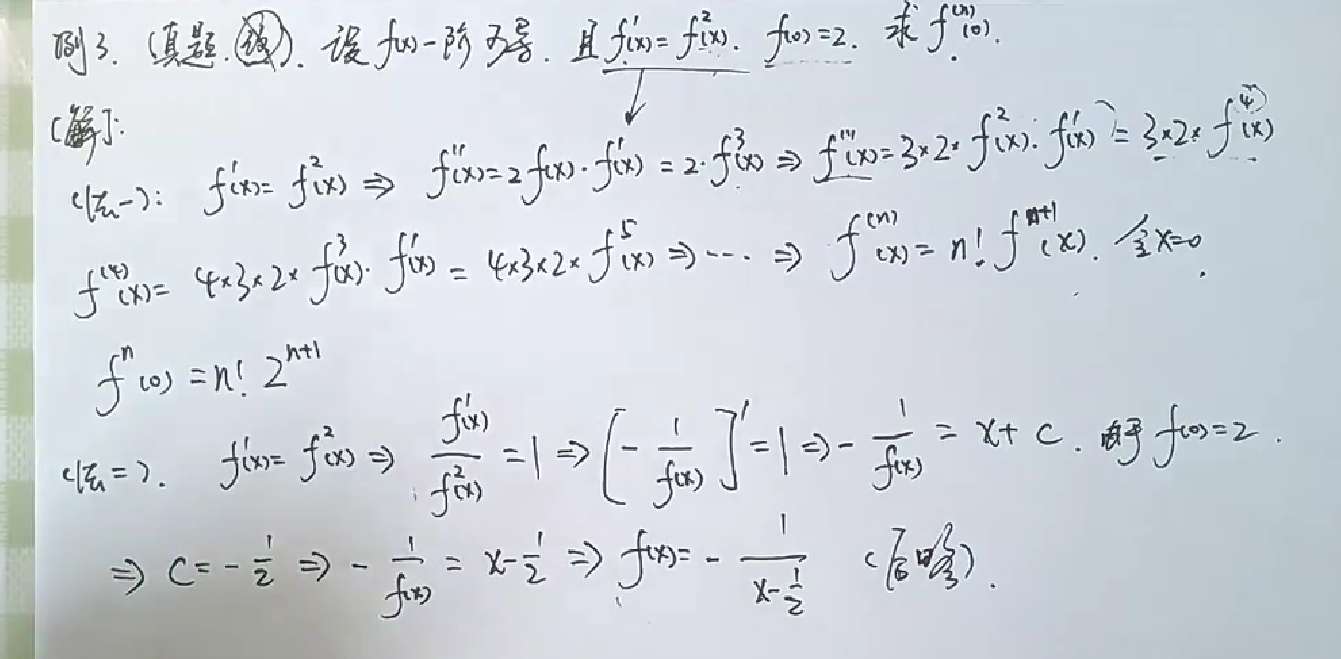 例3. (真题. ). 设 f(x) 一阶可导. 且 f'(x) = f²(x). f(0) = 2. 求 f⁽ⁿ⁾(0).
[解]:
(法一): f'(x) = f²(x) ⇒ f''(x) = 2f(x)·f'(x) = 2·f³(x) ⇒ f'''(x) = 3×2×f²(x)·f'(x) = 3×2×f⁴(x)
f⁽⁴⁾(x) = 4×3×2×f³(x)·f'(x) = 4×3×2×f⁵(x) ⇒ ··· ⇒ f⁽ⁿ⁾(x) = n! fⁿ⁺¹(x). 令x=0.
fⁿ(0) = n! 2ⁿ⁺¹
(法二). f'(x) = f²(x) ⇒ f'(x)/f²(x) = 1 ⇒ [-1/f(x)]' = 1 ⇒ -1/f(x) = x + c. 由于 f(0) = 2.
⇒ c = -1/2 ⇒ -1/f(x) = x - 1/2 ⇒ f(x) = -1/(x - 1/2) (后略).